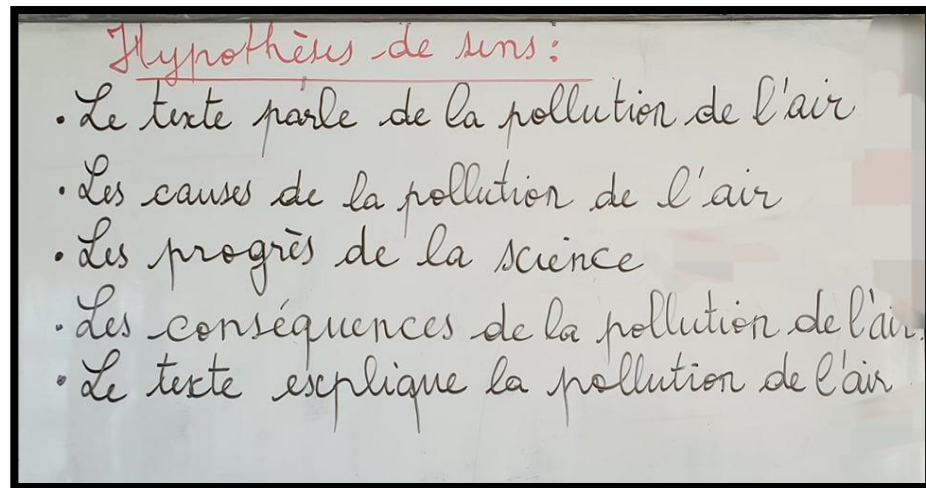 Hypothèses de sens:
. Le texte parle de la pollution de l'air
. Les causes de la pollution de l'air
. Les progrès de la science
. Les conséquences de la pollution de l'air.
. Le texte explique la pollution de l'air